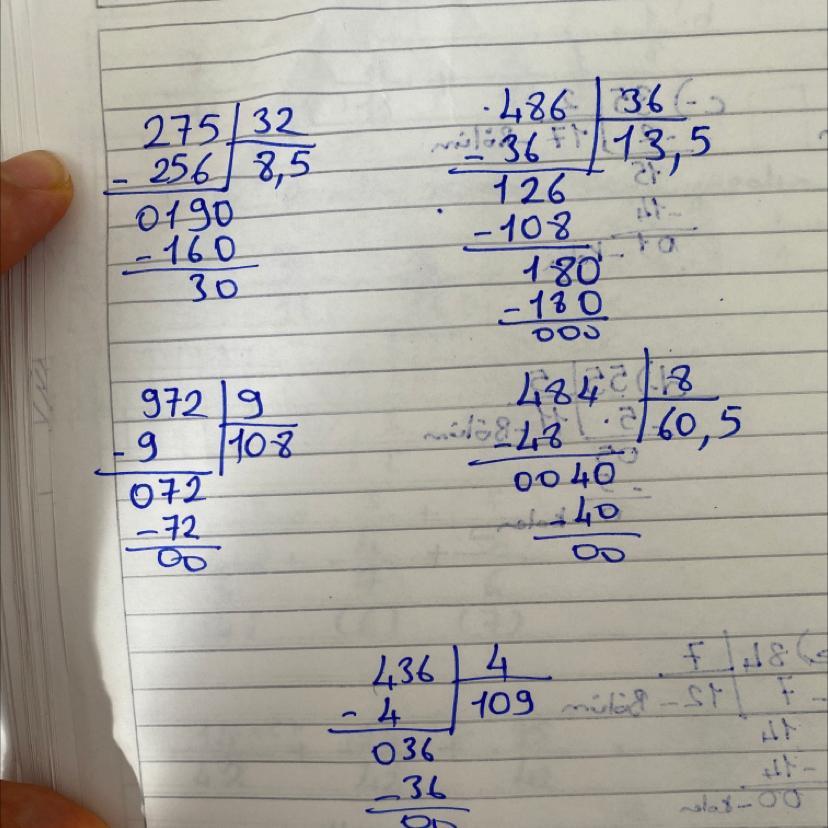 275 32
- 256 8,5
0190
- 160
30
486 36
- 36 13,5
126
- 108
180
- 180
000
972 9
- 9 108
072
- 72
00
484 8
- 48 60,5
0040
- 40
00
436 4
- 4 109
036
- 36
00